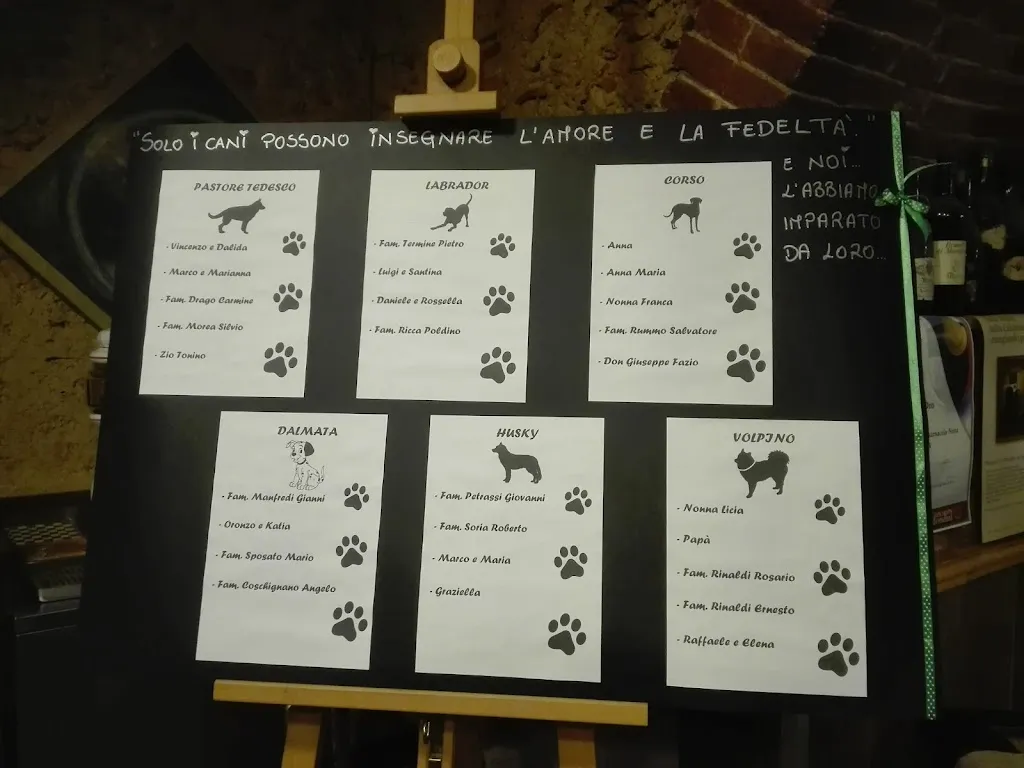 "SOLO I CANI POSSONO INSEGNARE L'AMORE E LA FEDELTÀ."
E NOI...
L'ABBIAMO
IMPARATO
DA LORO...
PASTORE TEDESCO
- Vincenzo e Dalida
- Marco e Marianna
- Fam. Drago Carmine
- Fam. Morea Silvio
- Zio Tonino
LABRADOR
- Fam. Termine Pietro
- Luigi e Santina
- Daniele e Rossella
- Fam. Ricca Poldino
CORSO
- Anna
- Anna Maria
- Nonna Franca
- Fam. Rummo Salvatore
- Don Giuseppe Fazio
DALMATA
- Fam. Manfredi Gianni
- Oronzo e Katia
- Fam. Sposato Mario
- Fam. Coschignano Angelo
HUSKY
- Fam. Petrassi Giovanni
- Fam. Soria Roberto
- Marco e Maria
- Graziella
VOLPINO
- Nonna Licia
- Papà
- Fam. Rinaldi Rosario
- Fam. Rinaldi Ernesto
- Raffaele e Elena